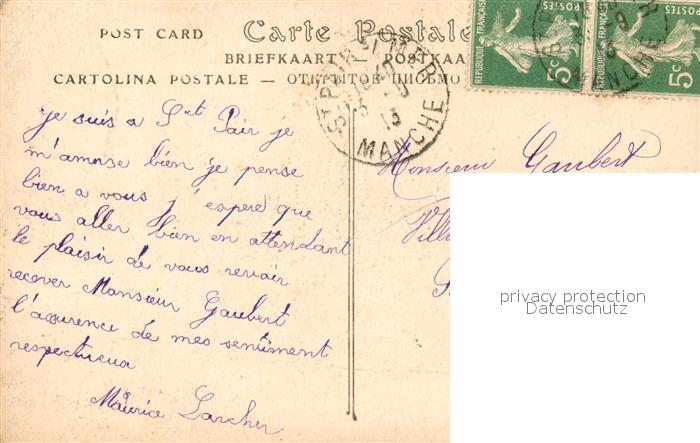 POST CARD Carte Postale
BRIEFKAART — POSTKAA
CARTOLINA POSTALE — ОТКРЫТОЕ ПИСЬМО
REPUBLIQUE FRANÇAISE POSTES 5c
REPUBLIQUE FRANÇAISE POSTES 5c
ST PAIR S MER
13
MANCHE
je suis a St Pair je
m'amuse bien je pense
bien a vous j'espere que
vous aller bien en attendant
le plaisir de vous revoir
recever Monsieur Gaubert
l'assurence de mes sentiment
respectueux
Maurice Larcher
Monsieur Gaubert
Vill
privacy protection
Datenschutz